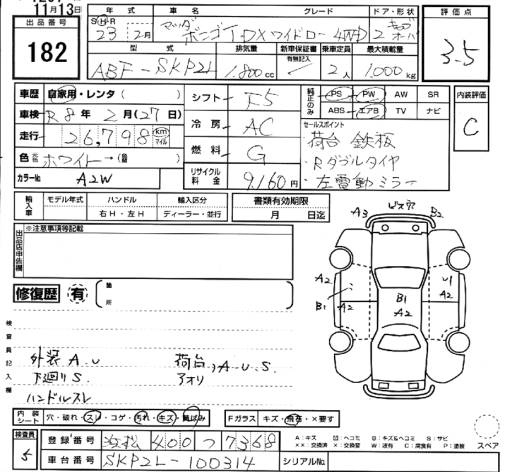 11月13日
出品番号
182
年式 車名 グレード ドア・形状 評価点
S H R
23年2月 マツダ ボンゴT DX ワイドロー 4WD 2
3.5
型式 排気量 新車保証書 乗車定員 最大積載量
有無記入
ABF-SKP2L 1,800cc 2人 1,000kg
車歴 自家用・レンタ( )
シフト F5
純正のみ PS PW AW SR
ABS エアB TV ナビ
内装評価
C
車検 R8年2月(27日)
冷房 AC
セールスポイント
荷台 鉄板
Rダブルタイヤ
左電動ミラー
走行 26,798 km マイル
燃料 G
色 ホワイト→( )
カラーNo A2W
リサイクル料金 9,160円
輸入車 モデル年式 ハンドル 輸入区分
右H・左H ディーラー・並行
書類有効期限
月 日迄
出品店申告欄 ※注意事項等記載
ビス穴
A3 B2
A2 B1 B1 A2 U1 A2
修復歴 有 箇所
検査員記入欄
外装 A.U
下廻り S.
ハンドルスレ
荷台 アオリ A.U.S.
内装シート 穴・破れ・スレ・コゲ・汚れ・キズ・黄ばみ
Fガラス キズ・飛石・×要す
検査員 5
登録番号 浜松 400 つ 7368
車台番号 SKP2L-100314
シリアルNo.
A:キズ U:ヘコミ B:キズ&ヘコミ S:サビ
××:交換済 X:要交換 W:波有 C:腐食有 P:塗装
スペア